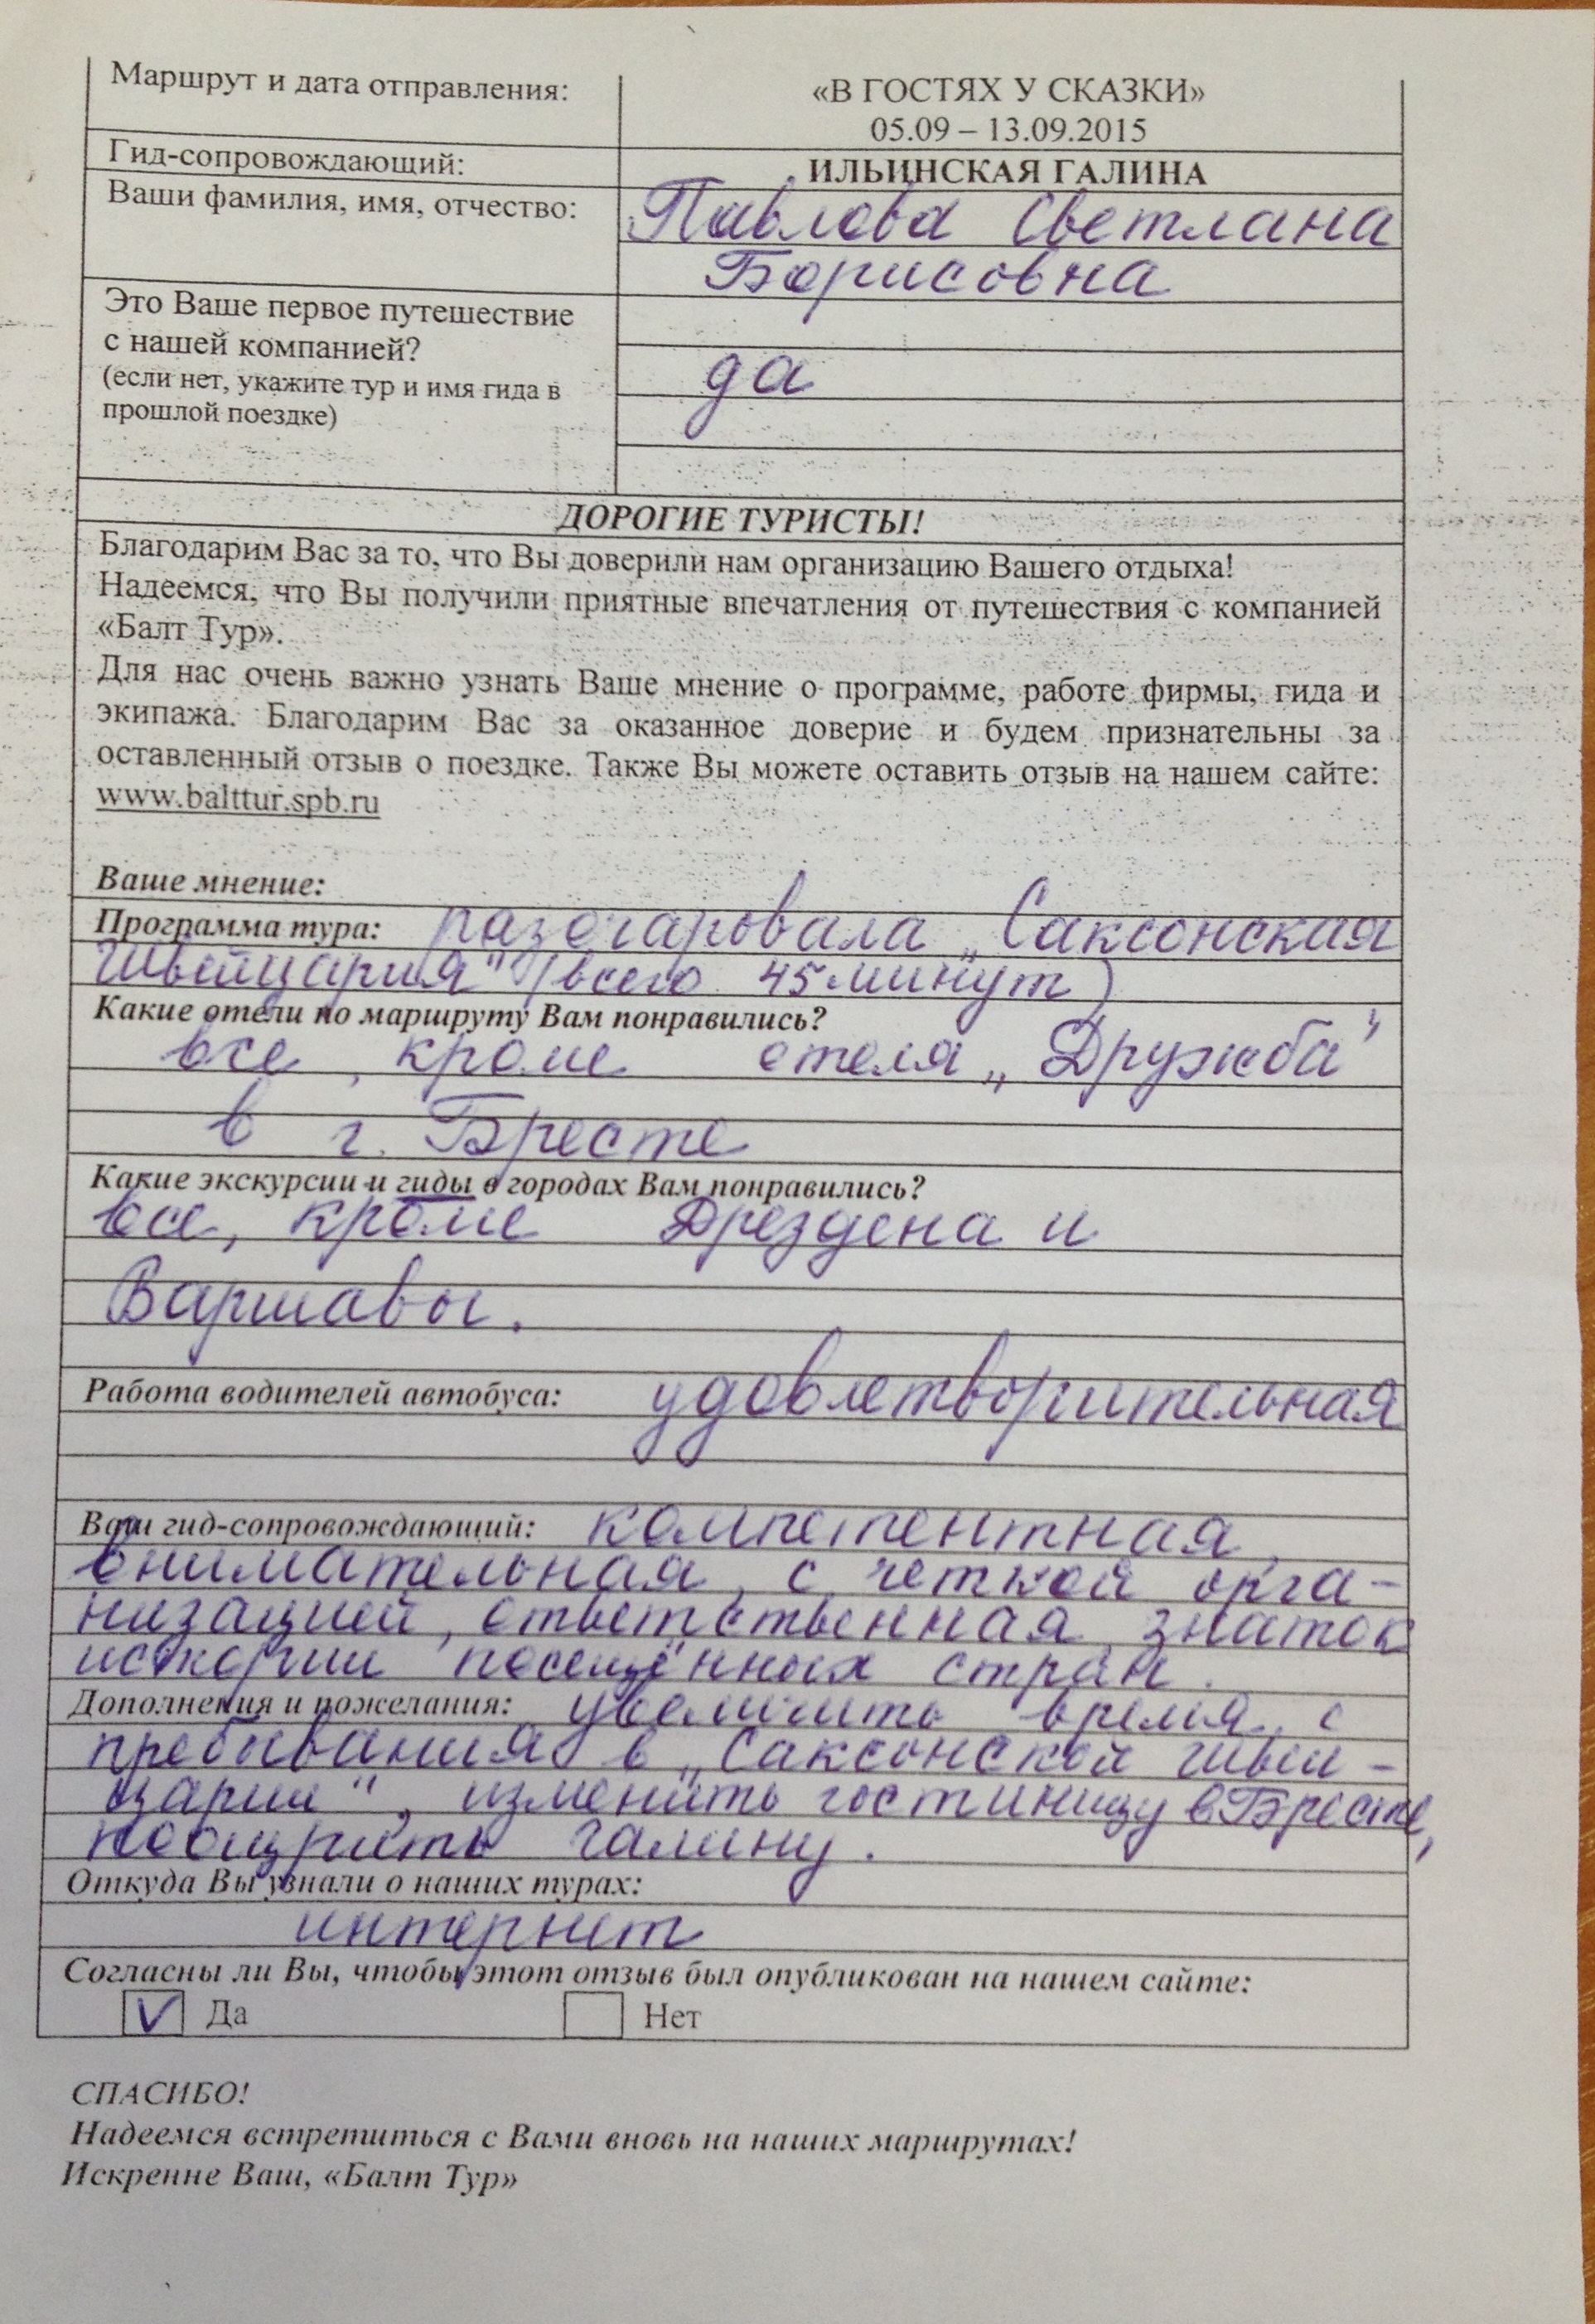 Маршрут и дата отправления:
«В ГОСТЯХ У СКАЗКИ»
05.09 – 13.09.2015
Гид-сопровождающий:
ИЛЬИНСКАЯ ГАЛИНА
Ваши фамилия, имя, отчество:
Павлова Светлана
Борисовна
Это Ваше первое путешествие
с нашей компанией?
(если нет, укажите тур и имя гида в
прошлой поездке)
да
ДОРОГИЕ ТУРИСТЫ!
Благодарим Вас за то, что Вы доверили нам организацию Вашего отдыха!
Надеемся, что Вы получили приятные впечатления от путешествия с компанией
«Балт Тур».
Для нас очень важно узнать Ваше мнение о программе, работе фирмы, гида и
экипажа. Благодарим Вас за оказанное доверие и будем признательны за
оставленный отзыв о поездке. Также Вы можете оставить отзыв на нашем сайте:
www.balttur.spb.ru
Ваше мнение:
Программа тура: разочаровала „Саксонская
Швейцария" (всего 45 минут)
Какие отели по маршруту Вам понравились?
все, кроме отеля „Дружба"
в г. Бресте
Какие экскурсии и гиды в городах Вам понравились?
все, кроме Дрездена и
Варшавы.
Работа водителей автобуса: удовлетворительная
Ваш гид-сопровождающий: компетентная,
внимательная, с четкой орга-
низацией, ответственная, знаток
истории посещённых стран.
Дополнения и пожелания: увеличить время
пребывания в „Саксонской Швей-
царии", изменить гостиницу в Бресте,
поощрить Галину.
Откуда Вы узнали о наших турах:
интернет
Согласны ли Вы, чтобы этот отзыв был опубликован на нашем сайте:
V Да Нет
СПАСИБО!
Надеемся встретиться с Вами вновь на наших маршрутах!
Искренне Ваш, «Балт Тур»